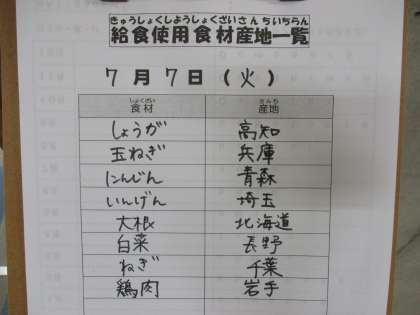 きゅうしょくしようしょくざいさんちいちらん
給食使用食材産地一覧
7月7日(火)
しょくざい さんち
食材 産地
しょうが 高知
玉ねぎ 兵庫
にんじん 青森
いんげん 埼玉
大根 北海道
白菜 長野
ねぎ 千葉
鶏肉 岩手